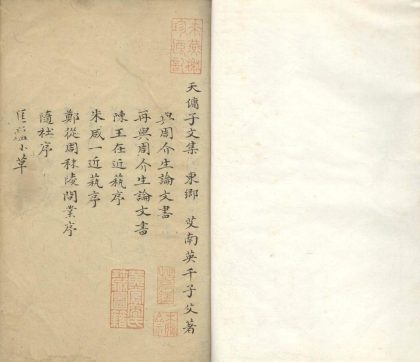 天傭子文集 東鄉 艾南英千子父著
與周介生論文書
再與周介生論文書
陳王在近藝序
朱咸一近藝序
鄭從周秣陵閒業序
隨社序
小草